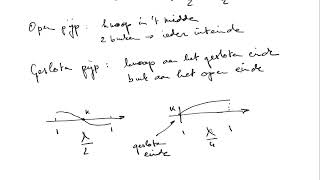 2
Open pijp: knoop in 't midden
2 buiken → ieder uiteinde
Gesloten pijp: knoop aan het gesloten einde
buik aan het open einde
K
K
1 1
1 1
λ/2
λ/4
gesloten
einde